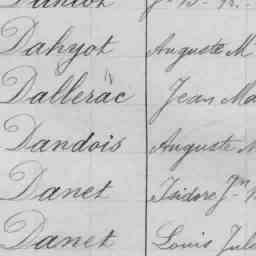 Dahyot Auguste M
Dallerac Jean Ma
Dandois Auguste M
Danet Isidore Jn
Danet Louis Jule